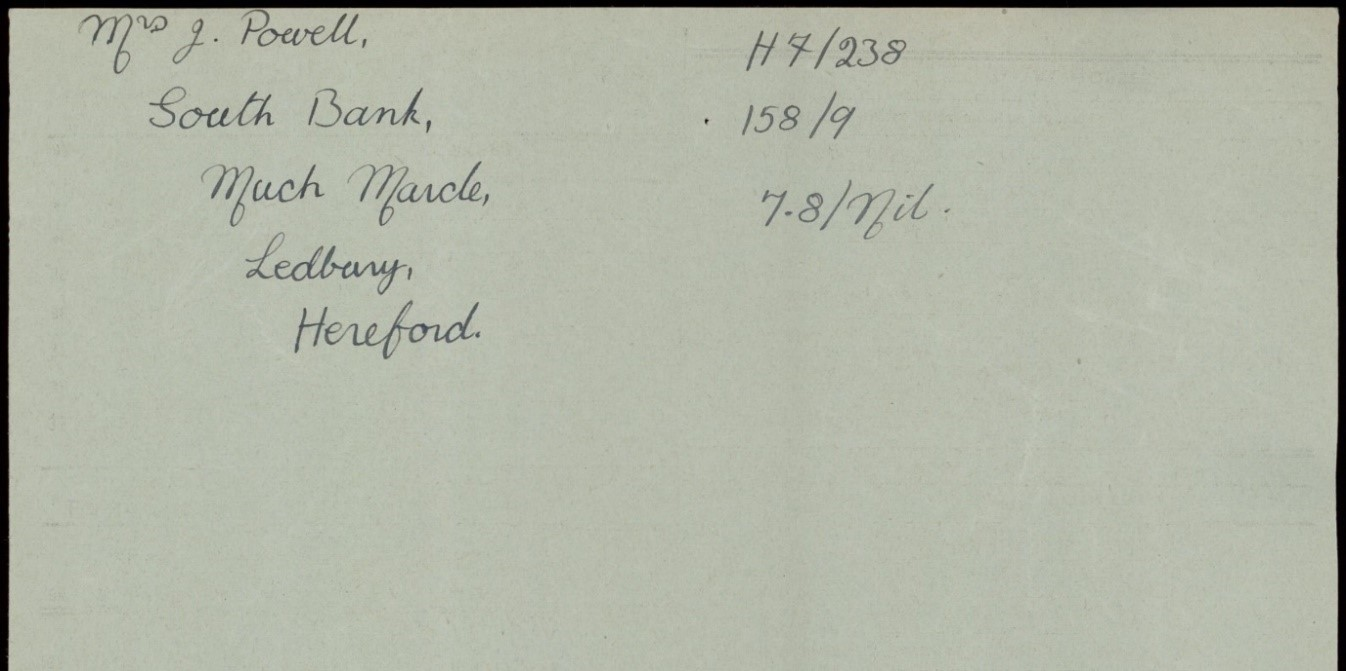 Mrs J. Powell,
South Bank,
Much Marcle,
Ledbury,
Hereford.
H7/238
158/9
7.8/Nil.